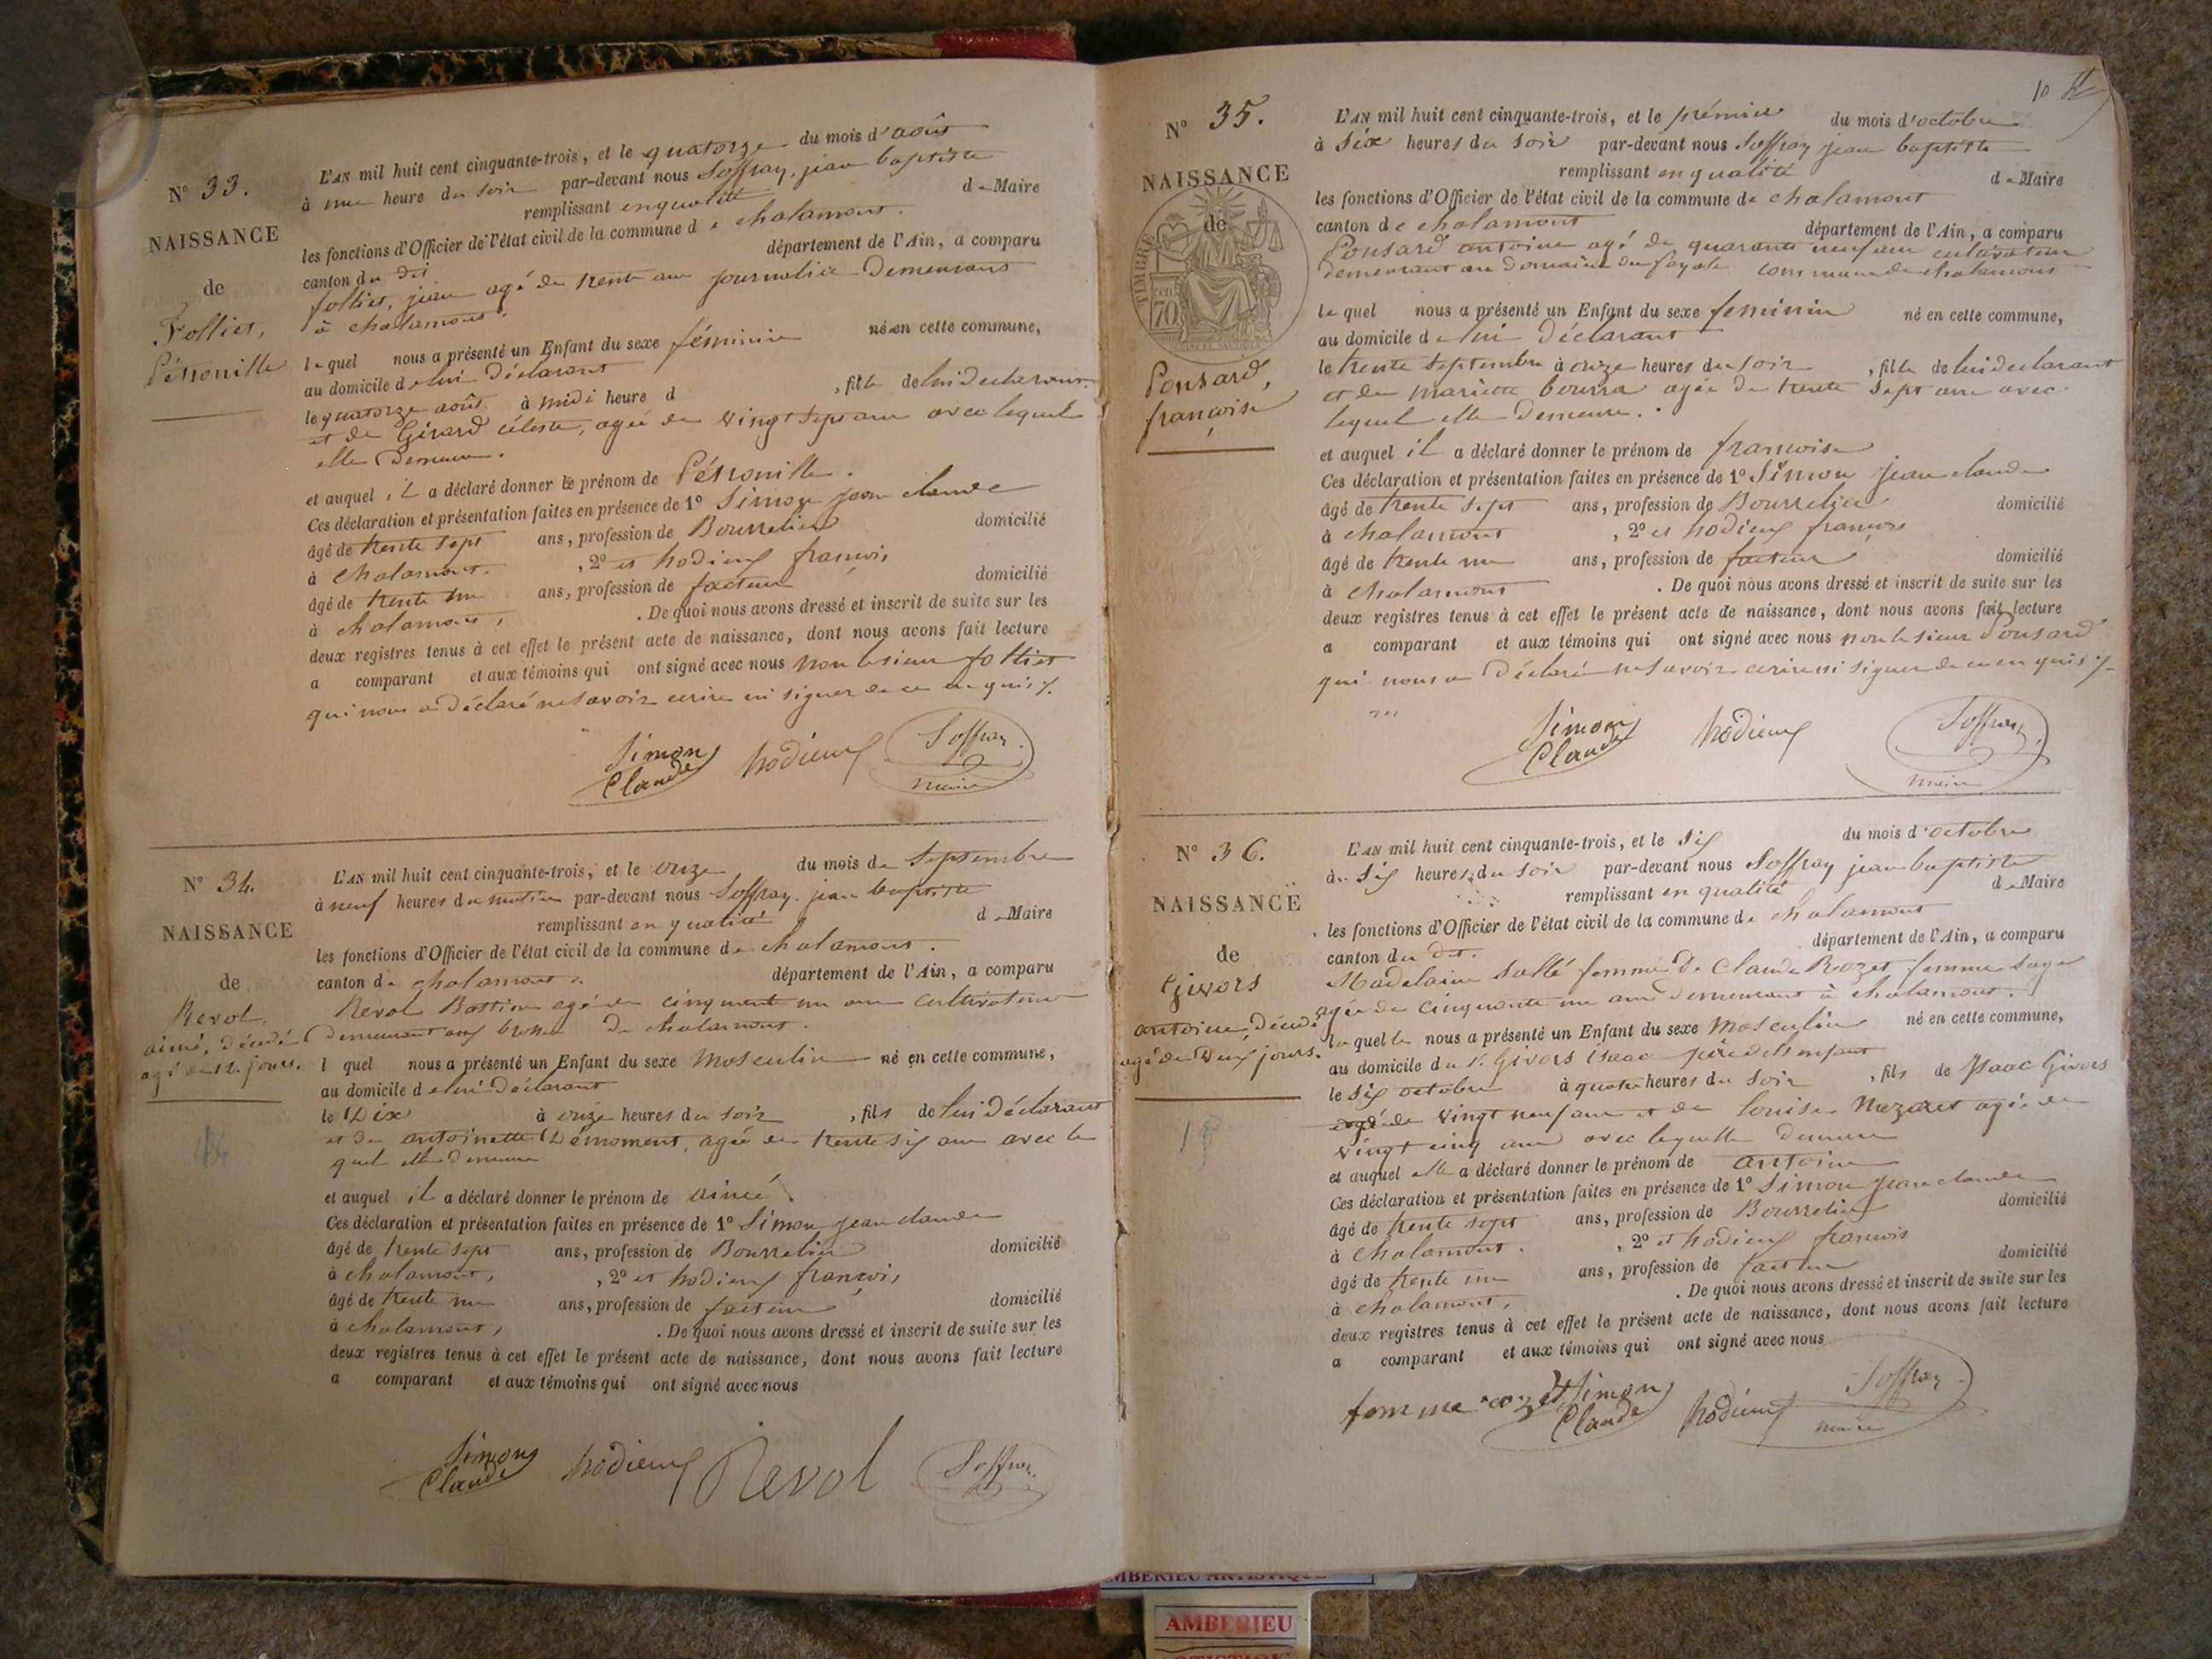 N° 33.
NAISSANCE
de
Folliet,
Pétronille
L'AN mil huit cent cinquante-trois, et le quatorze du mois d'août
à une heure du soir par-devant nous Soffray, jean baptiste
remplissant en qualité de Maire
les fonctions d'Officier de l'état civil de la commune de chalamont.
canton du dit département de l'Ain, a comparu
folliet, jean agé de trente ans journalier Demeurant
à chalamont.
lequel nous a présenté un Enfant du sexe féminin né en cette commune,
au domicile de lui Déclarant
le quatorze août à midi heure d , fille de lui declarant.
et de Girard céleste, agée de vingt sept ans avec lequel
elle Demeure.
et auquel il a déclaré donner le prénom de Pétronille.
Ces déclaration et présentation faites en présence de 1° Simon jean claude
âgé de trente sept ans, profession de Bourrelier domicilié
à chalamont. , 2° et hodieux françois
âgé de trente un ans, profession de facteur domicilié
à chalamont, . De quoi nous avons dressé et inscrit de suite sur les
deux registres tenus à cet effet le présent acte de naissance, dont nous avons fait lecture
a comparant et aux témoins qui ont signé avec nous non le sieur folliet
qui nous a déclaré ne savoir ecrire ni signer de ce enquis /.
Simon
Claude
hodieux
Soffray
maire
N° 34.
NAISSANCE
de
Revol
aimé, décédé
agé de 12. jours.
L'AN mil huit cent cinquante-trois, et le onze du mois de Septembre
à neuf heures du matin par-devant nous Soffray. jean baptiste
remplissant en qualité de Maire
les fonctions d'Officier de l'état civil de la commune de chalamont.
canton de chalamont. département de l'Ain, a comparu
Revol Bastien agé de cinquante un ans cultivateur
Demeurant aux De chalamont.
l quel nous a présenté un Enfant du sexe Masculin né en cette commune,
au domicile de lui Déclarant
le Dix à onze heures du soir , fils de lui Déclarant
et de antoinette Démoment, agée de trente six ans avec le
quel elle demeure
et auquel il a déclaré donner le prénom de aimé.
Ces déclaration et présentation faites en présence de 1° Simon jean claude
âgé de trente sept ans, profession de Bourrelier domicilié
à chalamont, , 2° et hodieux françois,
âgé de trente un ans, profession de facteur domicilié
à chalamont, . De quoi nous avons dressé et inscrit de suite sur les
deux registres tenus à cet effet le présent acte de naissance, dont nous avons fait lecture
a comparant et aux témoins qui ont signé avec nous
Simon
Claude
hodieux
Revol
Soffray
10
N° 35.
NAISSANCE
de
TIMBRE
70
Ponsard,
françoise
L'AN mil huit cent cinquante-trois, et le prémier du mois d'octobre
à six heures du soir par-devant nous Soffray jean baptiste
remplissant en qualité de Maire
les fonctions d'Officier de l'état civil de la commune de chalamont
canton de chalamont département de l'Ain, a comparu
Ponsard antoine agé de quarante neuf ans cultivateur
demeurant au Domaine du fayole commune de chalamont
le quel nous a présenté un Enfant du sexe feminin né en cette commune,
au domicile de lui Déclarant
le trente septembre à onze heures du soir , fille de lui declarant
et de mariette bourra agée de trente sept ans avec
lequel elle Demeure.
et auquel il a déclaré donner le prénom de francoise
Ces déclaration et présentation faites en présence de 1° Simon jean claude
âgé de trente sept ans, profession de Bourrelier domicilié
à chalamont , 2° et hodieux françois
âgé de trente un ans, profession de facteur domicilié
à chalamont . De quoi nous avons dressé et inscrit de suite sur les
deux registres tenus à cet effet le présent acte de naissance, dont nous avons fait lecture
a comparant et aux témoins qui ont signé avec nous non le sieur Ponsard
qui nous a Déclaré ne savoir ecrire ni signer de ce enquis /.
Simon
Claude
hodieux
Soffray
maire
N° 36.
NAISSANCE
de
Givors
antoine, décédé
agé de deux jours.
L'AN mil huit cent cinquante-trois, et le six du mois d'octobre
à six heures du soir par-devant nous Soffray jean baptiste
remplissant en qualité de Maire
les fonctions d'Officier de l'état civil de la commune de chalamont
canton du dit. département de l'Ain, a comparu
Madelaine Sallé femme De Claude Rozet femme sage
agée de cinquante un ans demeurant à chalamont.
laquelle nous a présenté un Enfant du sexe Masculin né en cette commune,
au domicile du s. Givors isaac père de l'enfant
le six octobre à quatre heures du soir , fils de isaac Givors
agé de vingt neuf ans et de louise Nezaret agée de
vingt cinq ans avec laquelle demeure
et auquel elle a déclaré donner le prénom de antoine
Ces déclaration et présentation faites en présence de 1° Simon jean claude
âgé de trente sept ans, profession de Bourrelier domicilié
à chalamont. , 2° et hodieux francois
âgé de trente un ans, profession de facteur domicilié
à chalamont, . De quoi nous avons dressé et inscrit de suite sur les
deux registres tenus à cet effet le présent acte de naissance, dont nous avons fait lecture
a comparant et aux témoins qui ont signé avec nous
femme rozet
Simon
Claude
hodieux
Soffray
maire
AMBERIEU ARTISTIQUE
AMBERIEU